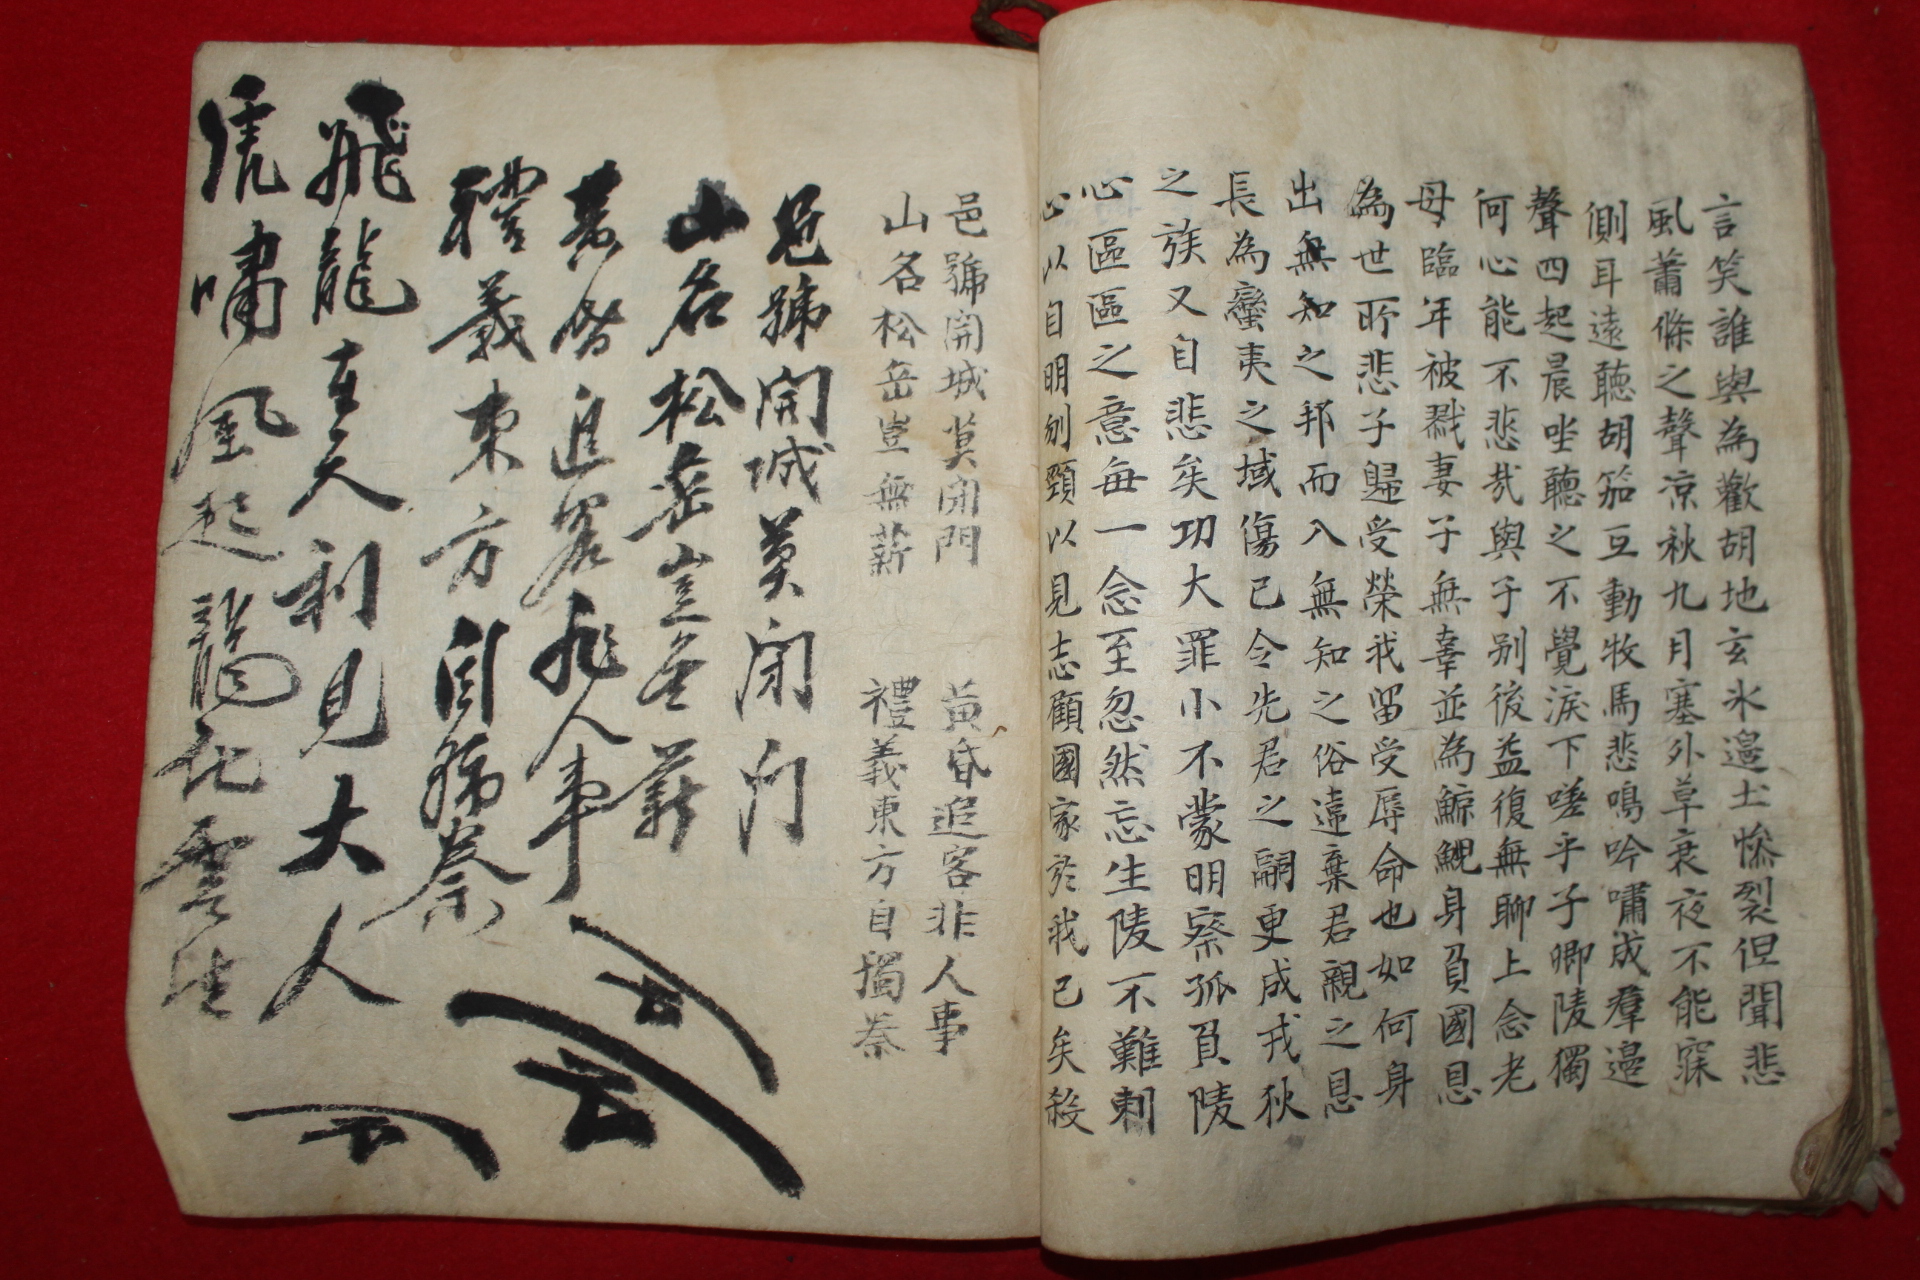 言笑誰與為歡胡地玄氷邉土慘裂但聞悲
風蕭條之聲凉秋九月塞外草衰夜不能寐
側耳遠聽胡笳互動牧馬悲鳴吟嘯成羣邉
聲四起晨坐聽之不覺淚下嗟乎子卿陵獨
何心能不悲哉與子别後益復無聊上念老
母臨年被戮妻子無辜並為鯨鯢身負國恩
為世所悲子歸受榮我留受辱命也如何身
出無知之邦而入無知之俗違棄君親之恩
長為蠻夷之域傷已令先君之嗣更成戎狄
之族又自悲矣功大罪小不蒙明察孤負陵
心區區之意每一念至忽然忘生陵不難刺
心以自明刎頸以見志顧國家於我已矣殺
邑號開城莫閉門 黃昏追客非人事
山名松岳豈無薪 禮義東方自獨秦
邑號開城莫閉門
山名松岳豈無薪
黃昏追客非人事
禮義東方自獨秦
飛龍在天利見大人
虎嘯風起龍記雲生